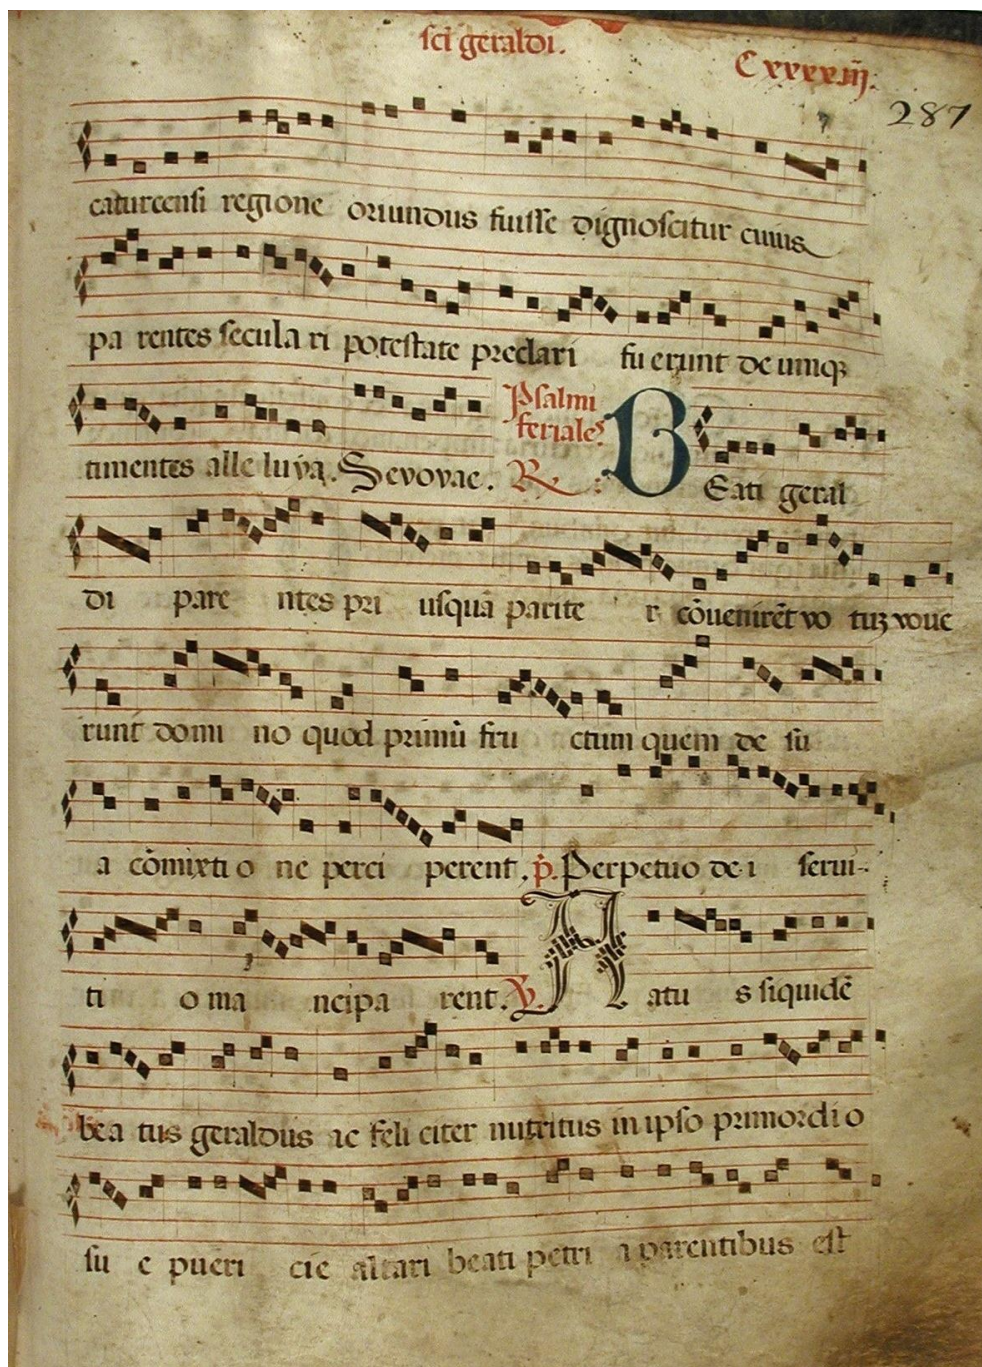 sci geraldi.
Cxxxxiij.
287
caturcensi regione oriundus fuisse dignoscitur cuius
pa rentes secula ri potestate preclari fu erunt de umq3
timentes alle luya. Sevovae. Psalmi
feriales.
R. BEati geral
di pare ntes pri usquã parite r cõuenirẽt vo tuʒ voue
runt domi no quod primũ fru ctum quem de su
a cõmixti o ne perci perent. p. Perpetuo de i serui-
ti o ma ncipa rent. V. Natu s siquidẽ
bea tus geraldus ac feli citer nutritus in ipso primordi o
su e pueri cie altari beati petri a parentibus est